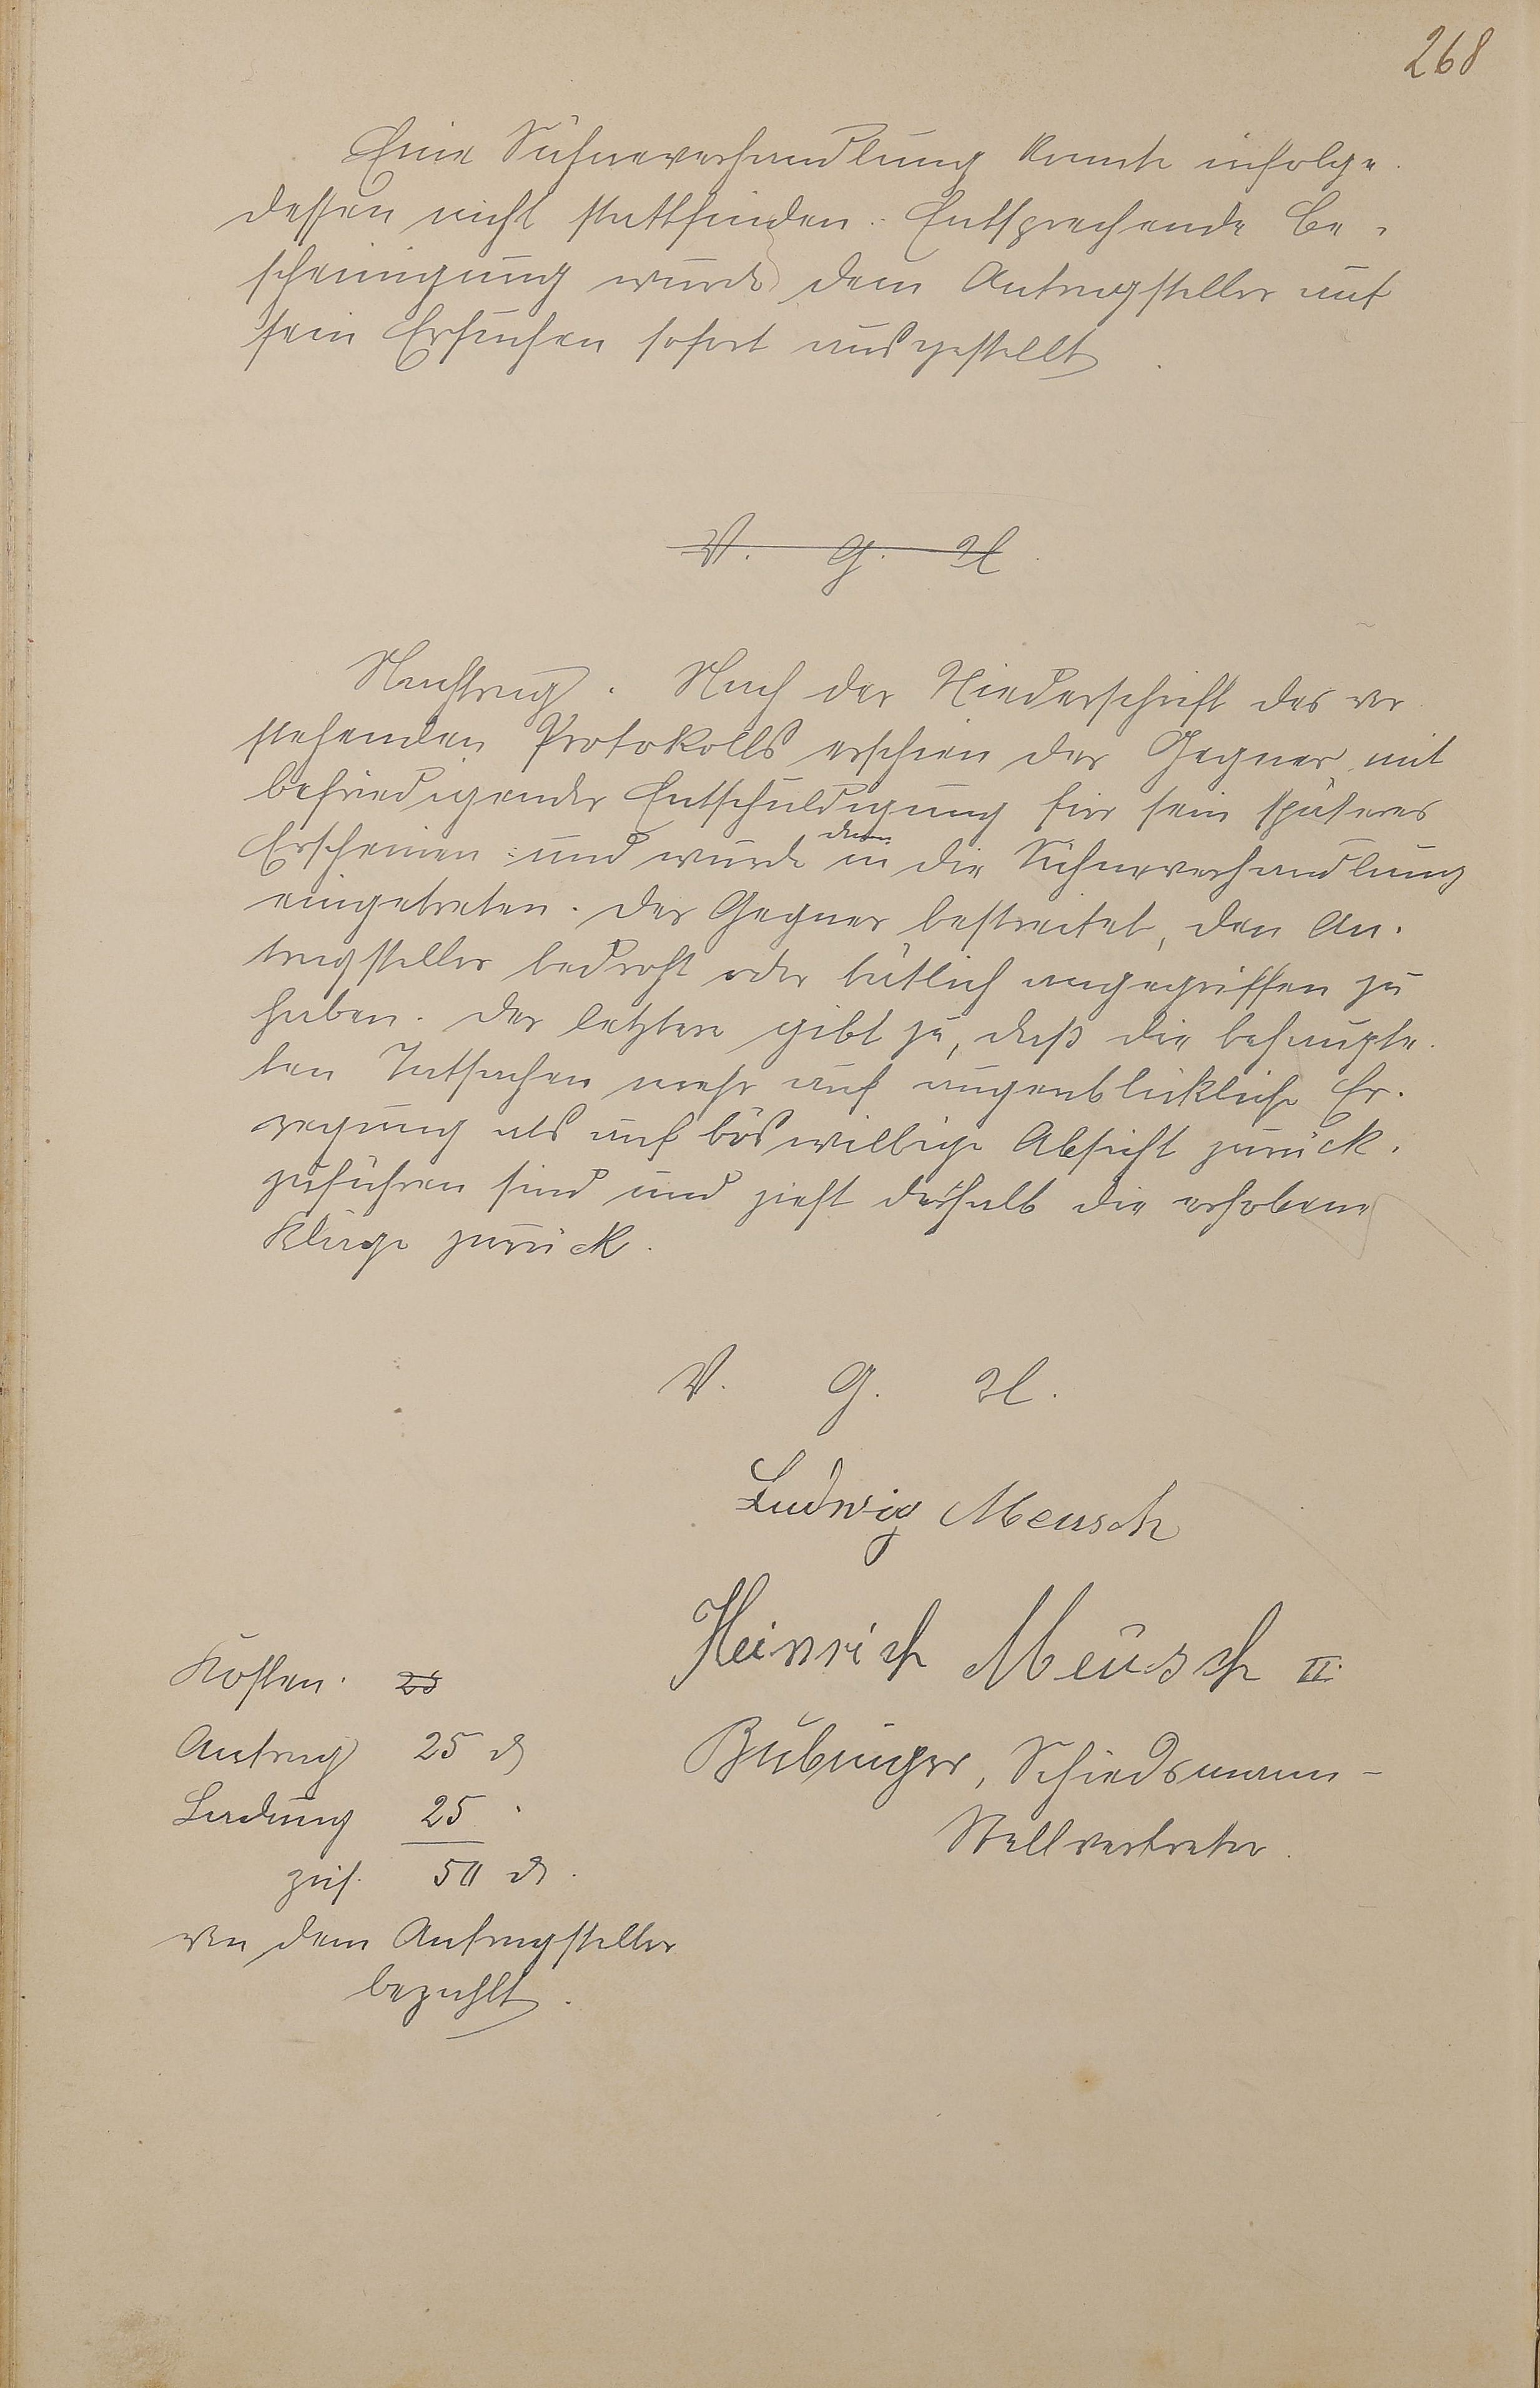 268
Eine Sühneverhandlung konnte infolge-
dessen nicht stattfinden. Entsprechende Be-
scheinigung wurde dem Antragsteller auf
sein Ersuchen sofort ausgestellt.
V. G. U.
Nachtrag. Nach der Niederschrift des vor-
stehenden Protokolls erschien der Gegner mit
befriedigender Entschuldigung für sein späteres
dann
Erscheinen und wurde in die Sühneverhandlung
eingetreten. Der Gegner bestreitet, den An-
tragsteller bedroht oder tätlich angegriffen zu
haben. Der letztere gibt zu, daß die behaupte-
ten Tatsachen mehr auf augenblickliche Er-
regung als auf böswillige Absicht zurück-
zuführen sind und zieht deshalb die erhobene
Klage zurück.
V. G. U.
Ludwig Meusch
Heinrich Meusch II.
Kosten. 25
Antrag 25 ₰
Bübinger, Schiedsmann-
Ladung 25 "
Stellvertreter.
zus. 50 ₰.
von dem Antragsteller
bezahlt.